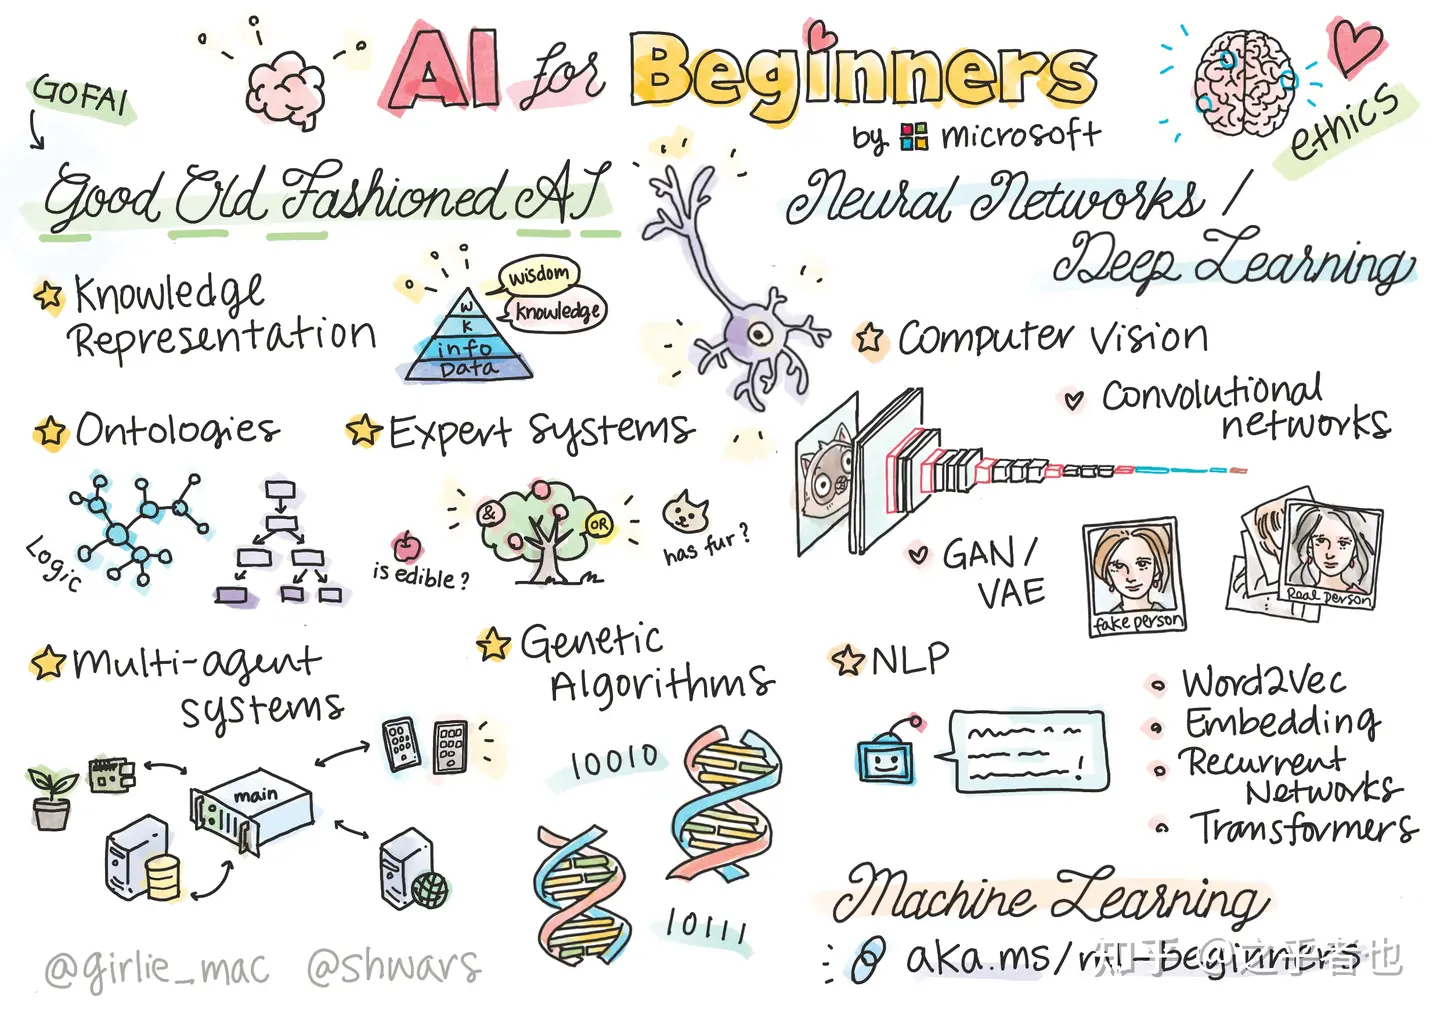 AI for Beginners
by microsoft
GOFAI
Good Old Fashioned AI
Knowledge
Representation
wisdom
knowledge
W
K
info
Data
Ontologies
Logic
Expert Systems
&
OR
is edible?
has fur?
Multi-agent
systems
main
Genetic
Algorithms
10010
10111
ethics
Neural Networks /
Deep Learning
Computer Vision
Convolutional
networks
GAN /
VAE
fake person
Real person
NLP
Word2Vec
Embedding
Recurrent
Networks
Transformers
Machine Learning
aka.ms/ml-beginners
@girlie_mac @shwars
知乎 @之乎者也